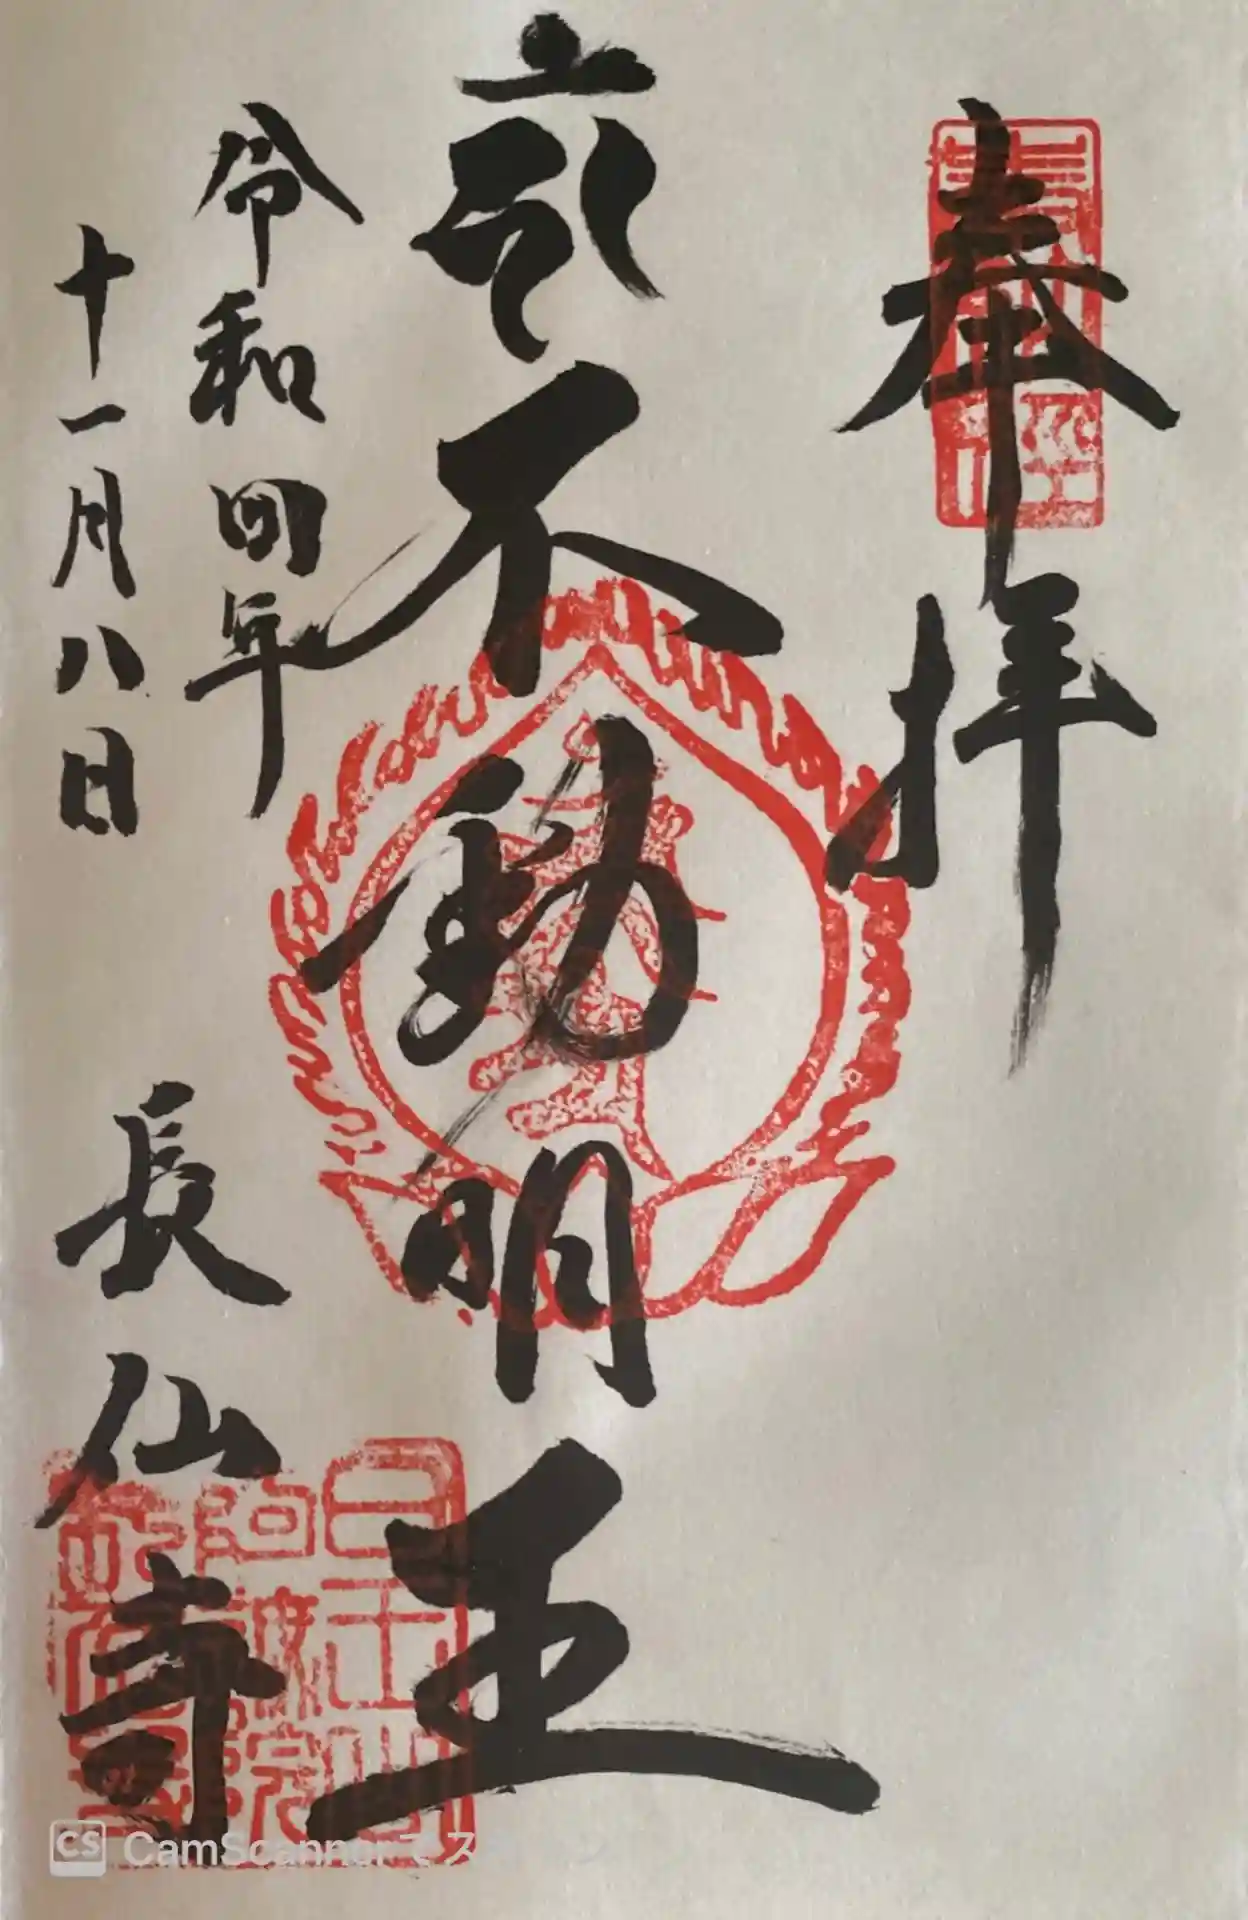 奉拝
不動明王
令和四年
十一月八日
長仙寺
CS CamScannerでス